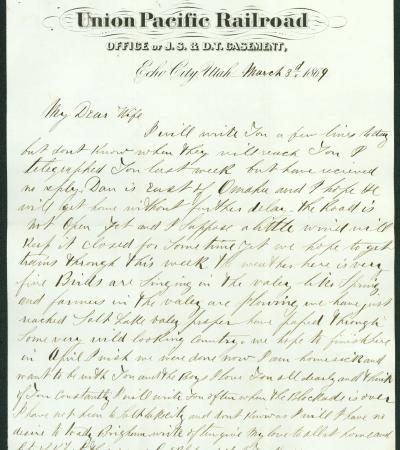 Union Pacific Railroad
OFFICE OF J. S. & D. T. CASEMENT,
Echo City, Utah March 3d, 1869
My Dear Wife
I will write You a few lines today
but dont Know when they will reach You I
telegraphed You last week but have received
no reply. Dan is East of Omaha and I hope He
will get home without further delay. the Road is
not Open yet and I suppose a little wind will
Keep it closed for some time yet we hope to get
trains through this week the weather here is very
fine Birds are singing in the valey like Spring
and farmers in the valey are plowing, we have just
reached Salt Lake valey proper have passed through
Some very wild looking Country. we hope to finish here
in April I wish we were done now I am homesick and
want to be with You and the Boys I love You all dearly and think
of You constantly I will write You often when the Blockade is over
I have not been to Salt Lake City and dont Know as I will I have no
desire to to Brigham. write often give my love to all at home and